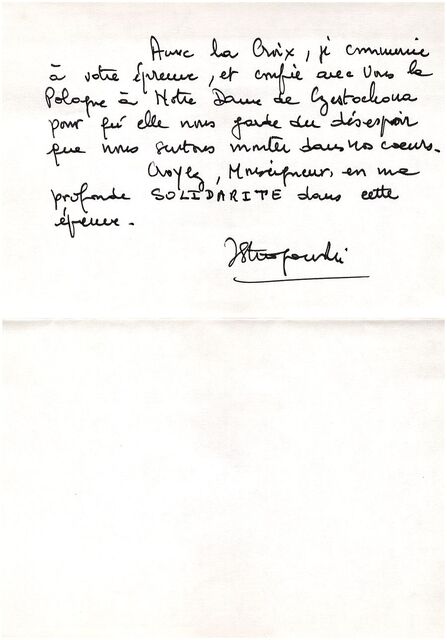 Avec la Croix, je communie
à votre épreuve, et confie avec vous la
Pologne à Notre Dame de Czestochowa
pour qu'elle nous garde du désespoir
que nous sentons monter dans nos coeurs.
Croyez, Monseigneur, en ma
profonde SOLIDARITE dans cette
épreuve.